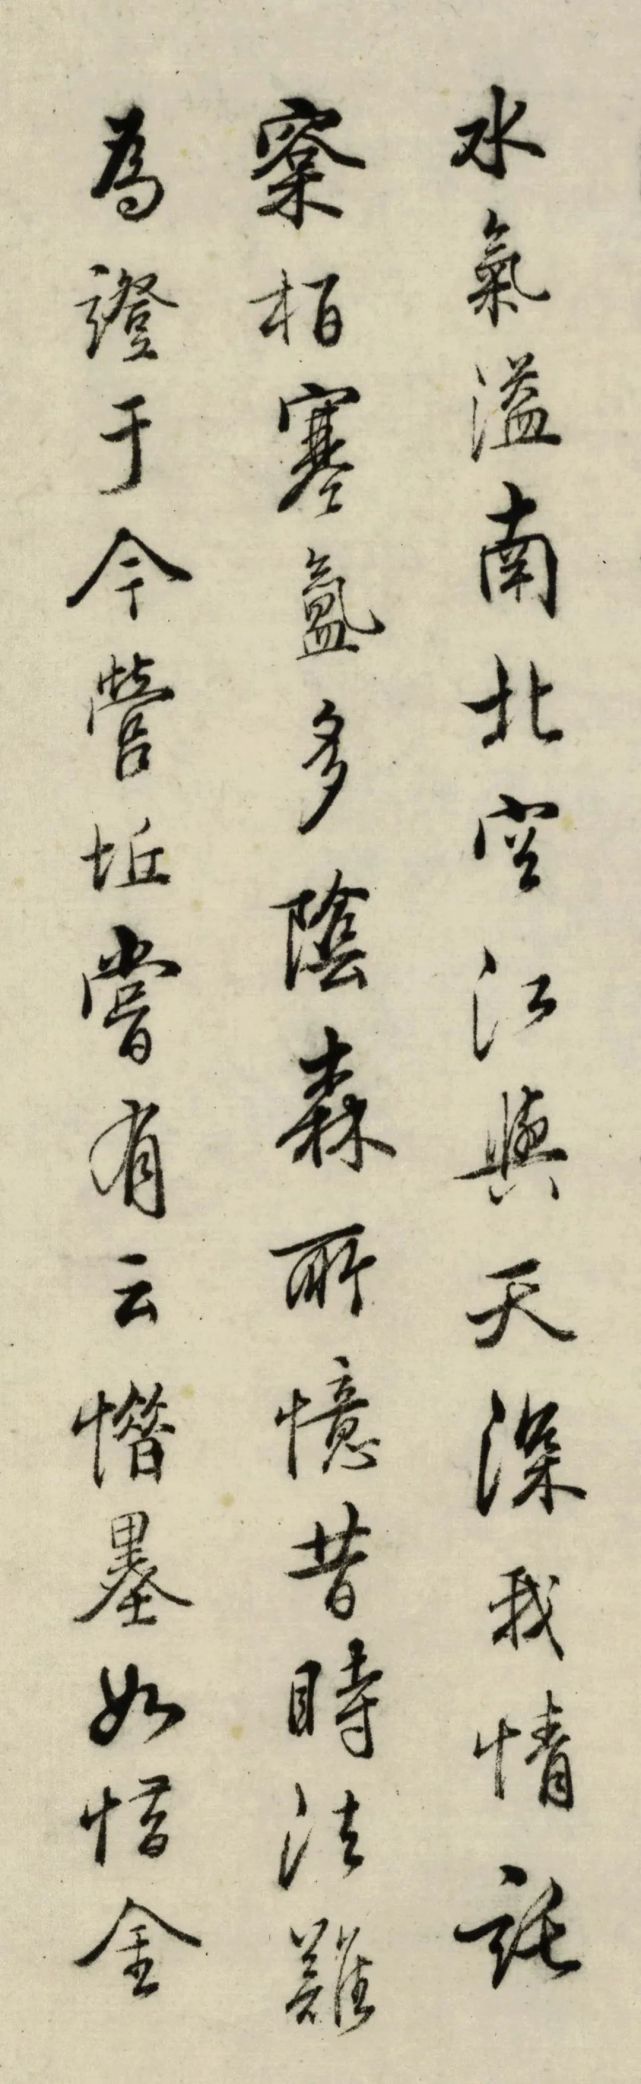 水氣溢南北空江與天深我情託
窠栢寒氳多陰森所憶昔時法難
為證于今營坵嘗有云惜墨如惜金